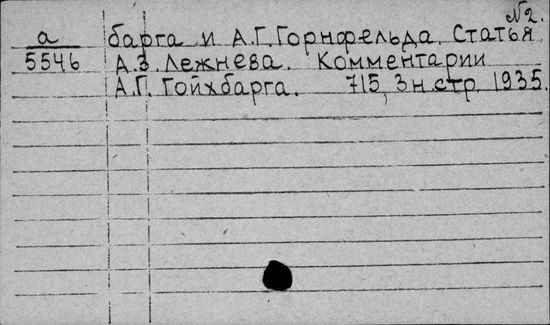 №2.
а барга и А.Г. Горнфельда. Статья
5546 А.З. Лежнева. Комментарии
А.Г. Гойхбарга. 715, 3 н.стр. 1935.